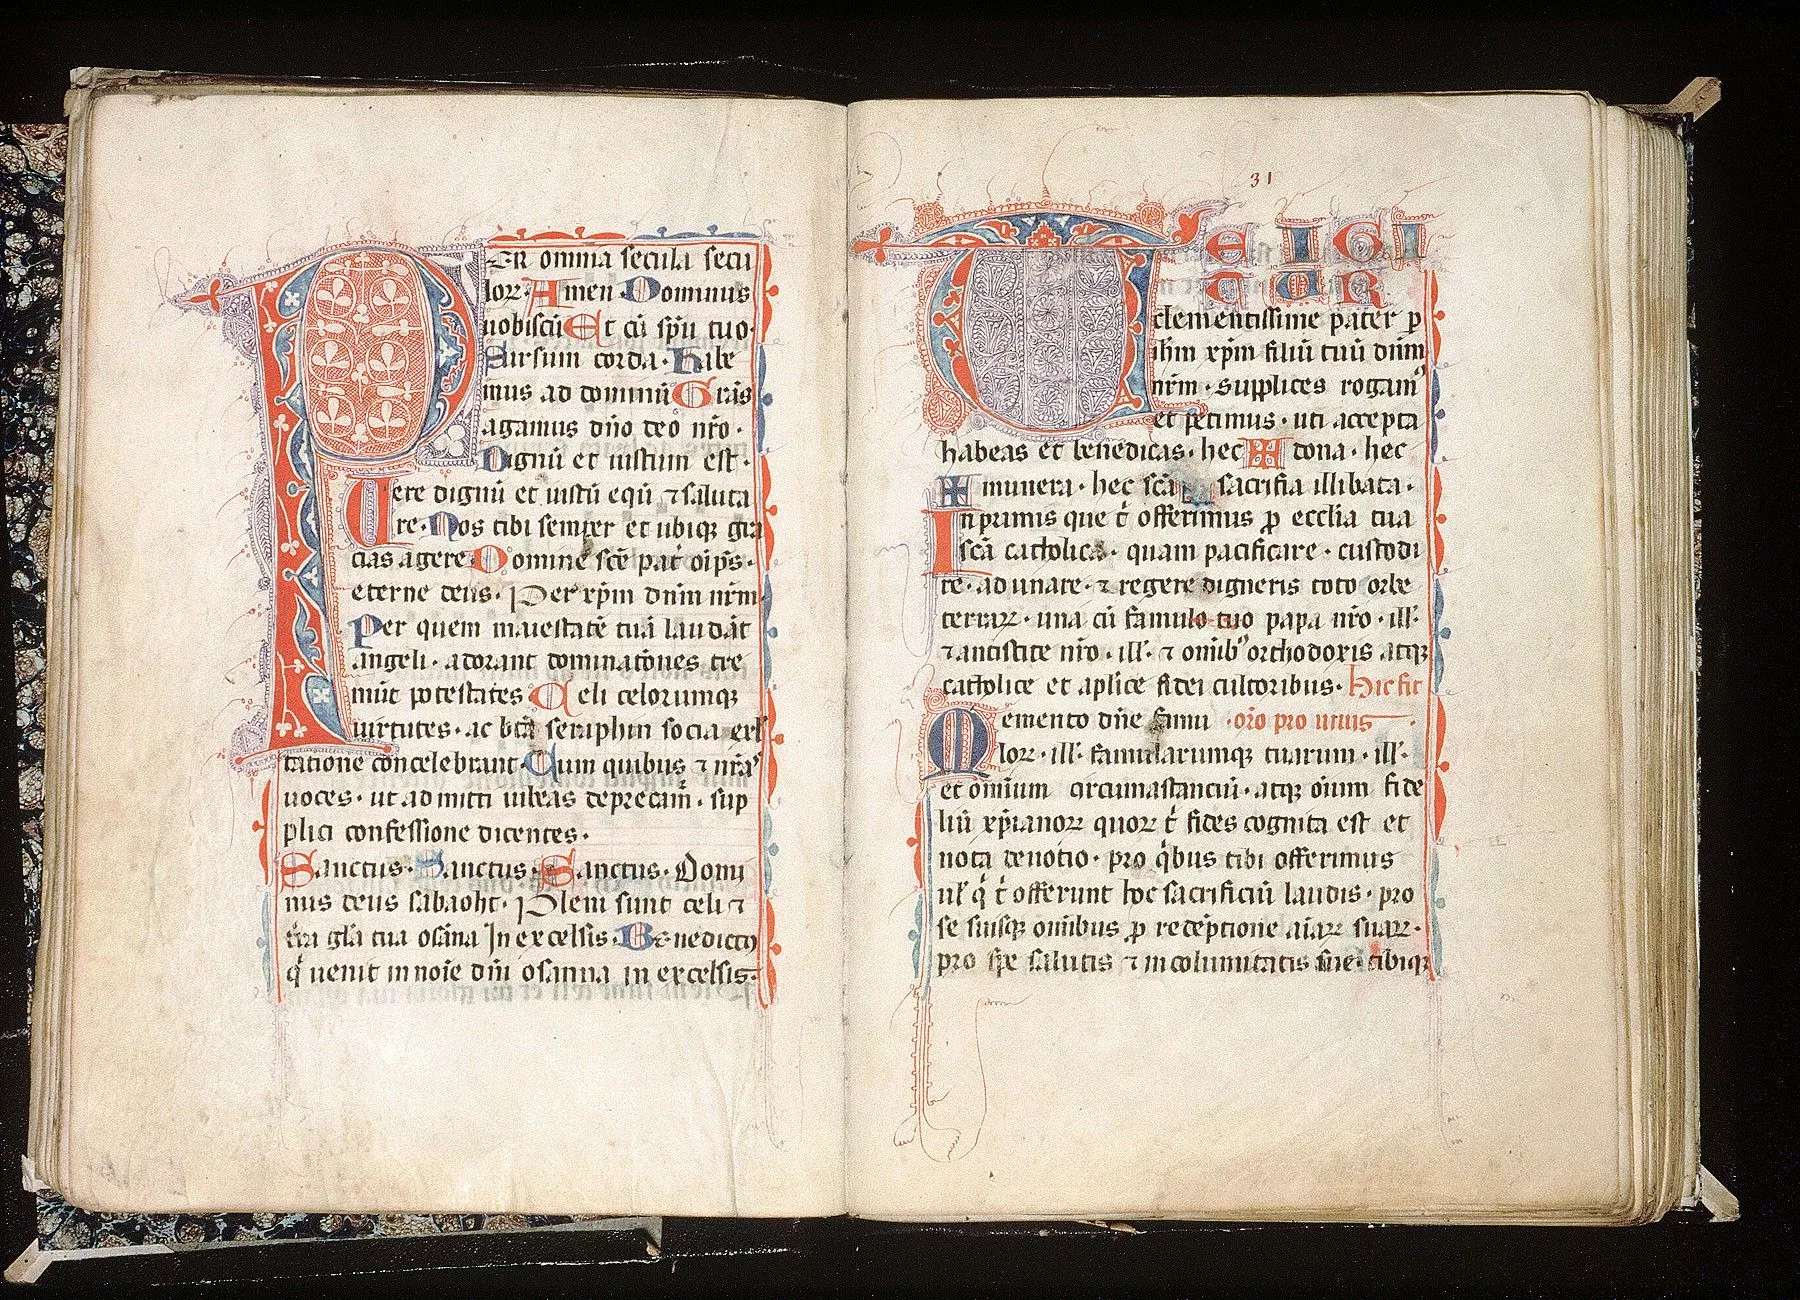 PER omnia secula secu
loꝝ· Amen Dominus
uobiscū Et cū spū tuo·
Sursum corda· Habe
mus ad dominū Grās
agamus dn̄o deo nr̄o·
Dignū et iustum est·
Uere dignū et iustū equū ⁊ saluta
re· Nos tibi semper et ubiqꝫ gra
cias agere Domine sc̄e pat̄ oīps·
eterne deus· Per xp̄m dn̄m nr̄m·
Per quem maiestatē tuā laudāt
angeli· adorant dominatōnes tre
mūt potestates Celi celorumqꝫ
uirtutes· ac btā seraphin socia exl
tatione concelebrant· Cum quibus ⁊ nrā
uoces· ut admitti iubeas deprecam̄· sup
plici confessione dicentes·
Sanctus· Sanctus· Sanctus· Domi
nus deus sabaoht· Pleni sunt celi ⁊
t̄ra gl̄a tua osāna In excelsis· Benedictꝯ
q̄ uenit in noīe dn̄i osanna in excelsis·
31
TE IGI
TUR
clementissime pater ꝑ
ihm xp̄m filiū tuū dn̄m
nr̄m· supplices rogamꝰ
et petimus· uti accepta
habeas et benedicas· hec ✠ dona· hec
✠ munera· hec sc̄a ✠ sacrifia illibata·
In primis que t̄ offerimus ꝑ ecclia tua
sc̄a catholica· quam pacificare· custodi
re· adunare· ⁊ regere digneris toto orbe
terraꝝ· una cū famulo tuo papa nr̄o· ill·
⁊ antistite nr̄o· ill· ⁊ omībꝰ orthodoxis atqꝫ
catholice et aplice fidei cultoribus· Hic fit
Memento dn̄e famu· or̄o pro uiuis·
loꝝ· ill· famularumqꝫ tuarum· ill·
et omnium circumastanciū· atqꝫ oīum fide
liū xp̄ianoꝝ quoꝝ t̄ fides cognita est et
nota deuotio· pro q̄bus tibi offerimus
ul̄ q̄ t̄ offerunt hoc sacrificiū laudis· pro
se suisqꝫ omībus ꝑ redēptione aīaꝝ suaꝝ·
pro spe salutis ⁊ incolumitatis sue· tibiqꝫ